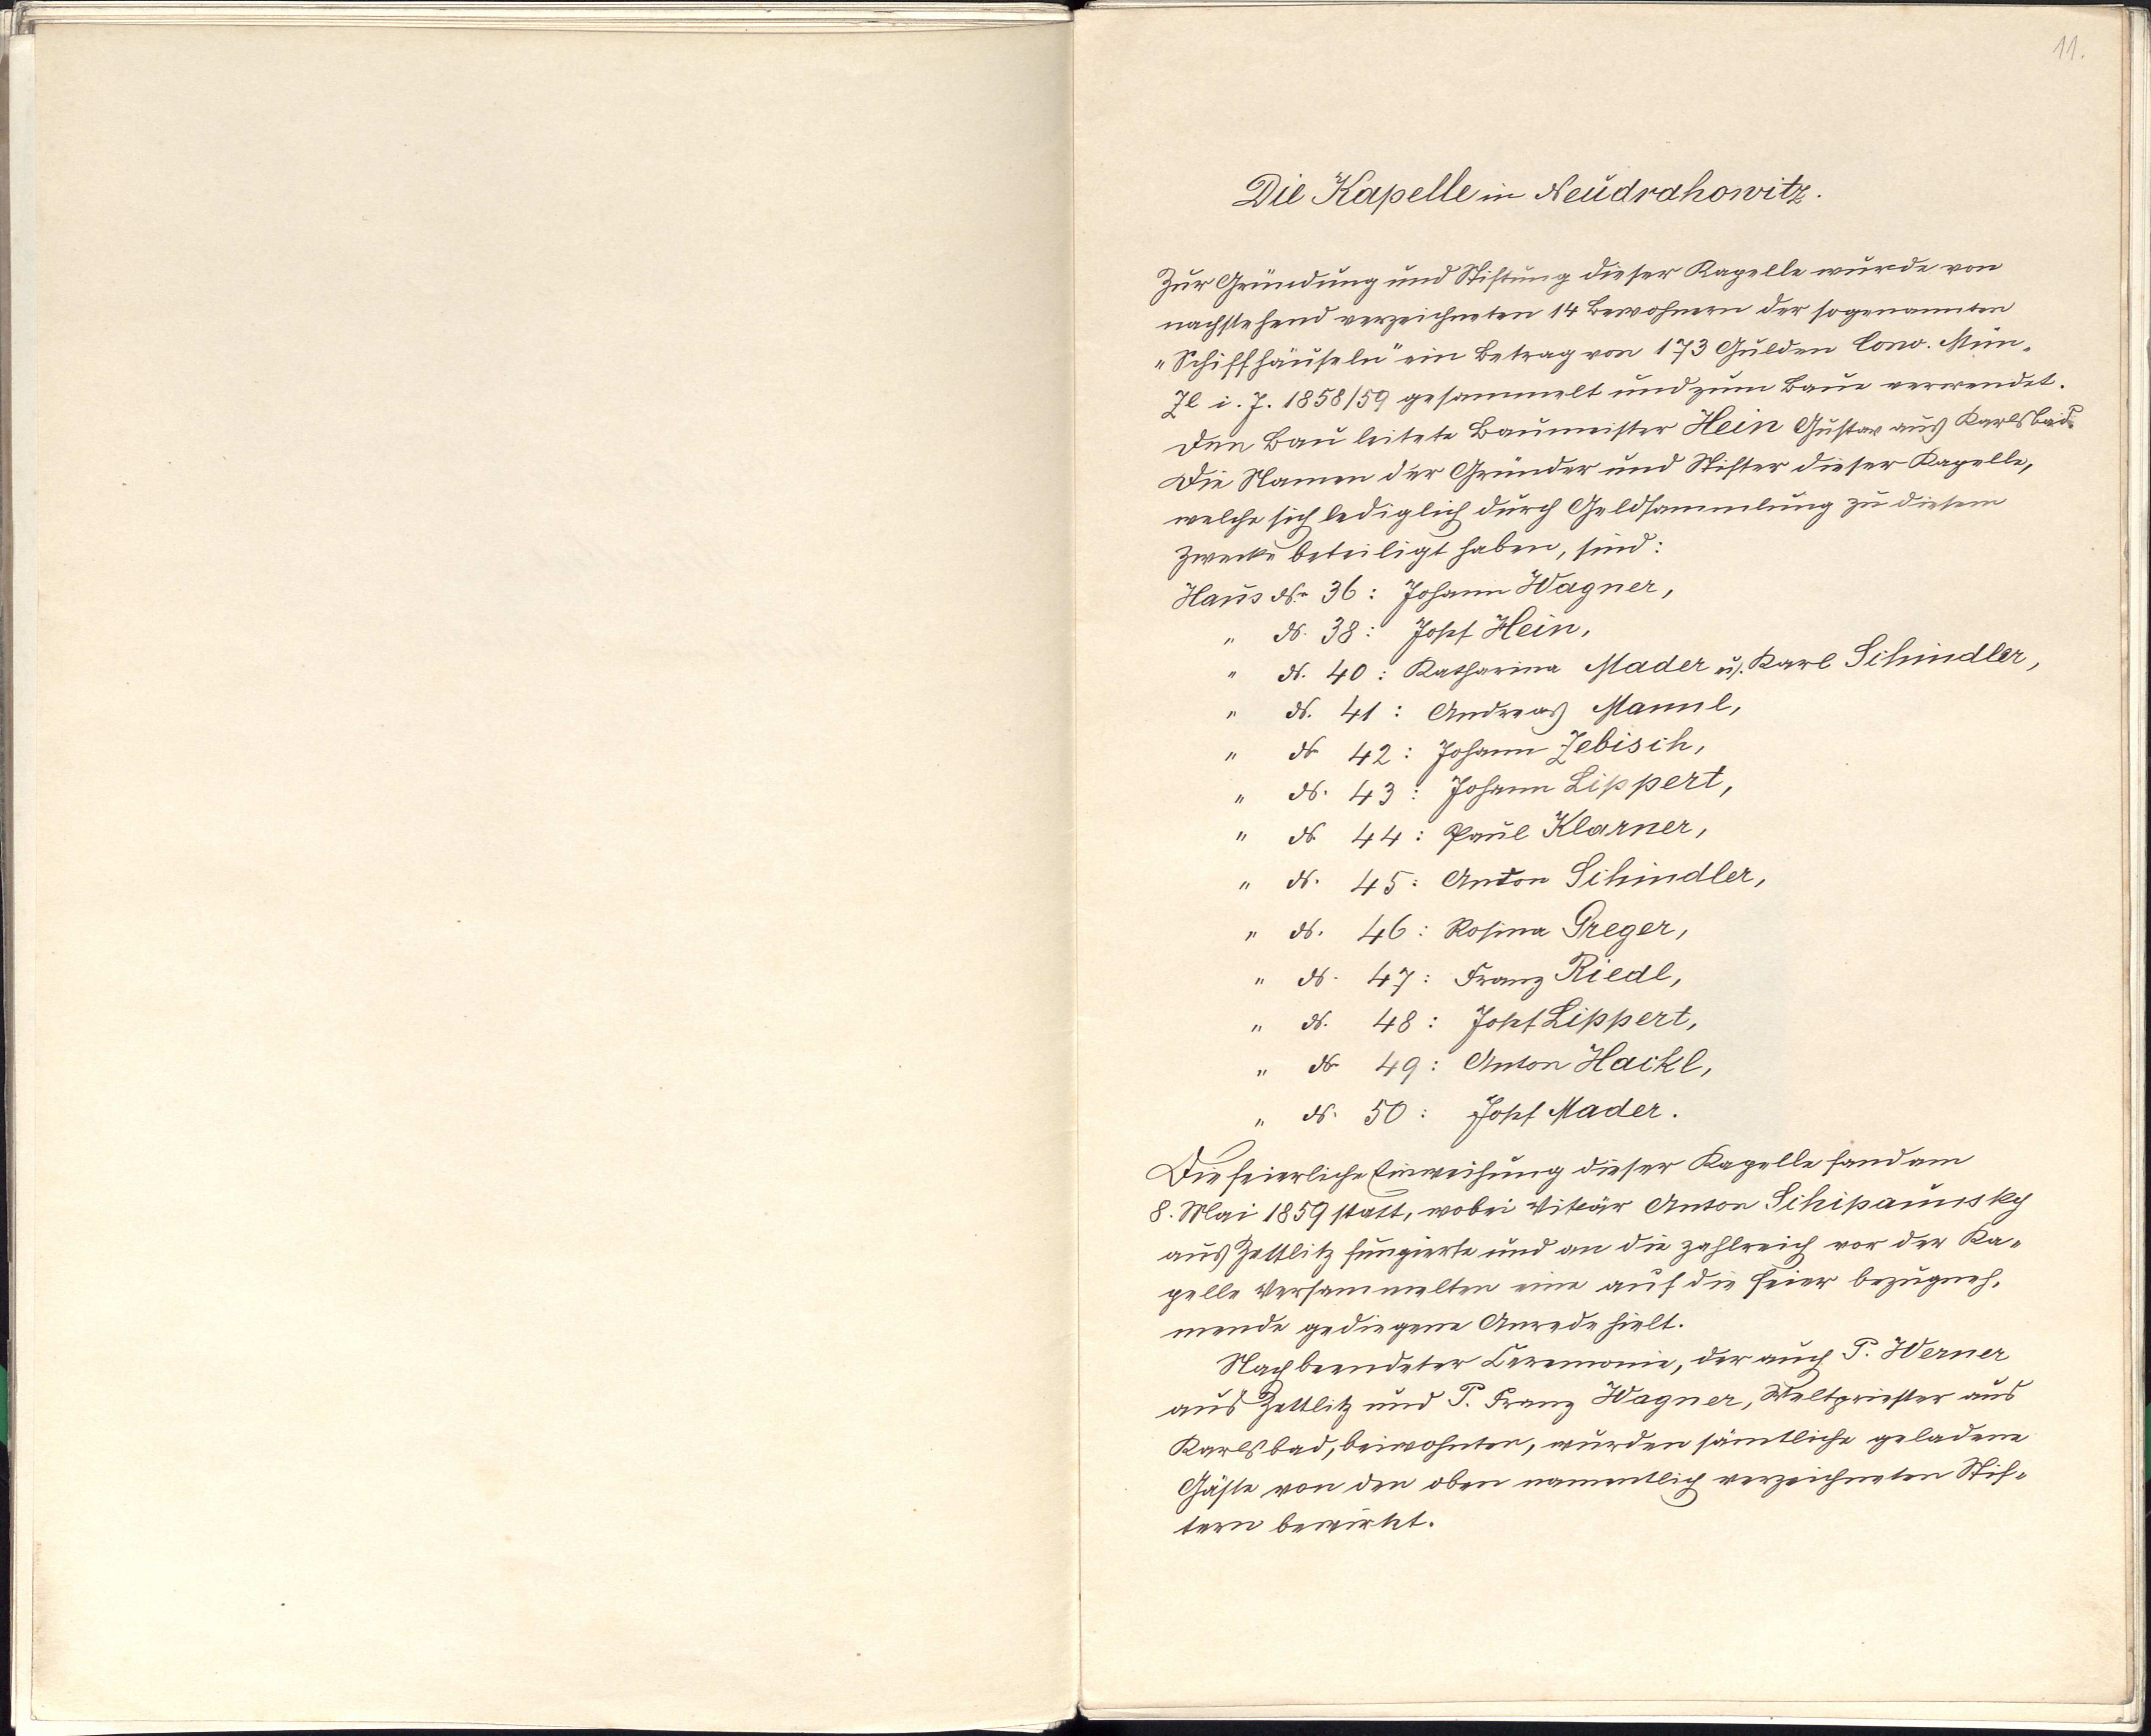 11.
Die Kapelle in Neudrahowitz.
Zur Gründung und Stiftung dieser Kapelle wurde von
nachstehend verzeichneten 14 Bewohnern der sogenannten
„Schiffhäuseln" ein Betrag von 173 Gulden Conv. Mün-
ze i. J. 1858/59 gesammelt und zum Baue verwendet.
Den Bau leitete Baumeister Hein Gustav aus Karlsbad.
Die Namen der Gründer und Stifter dieser Kapelle,
welche sich lediglich durch Geldsammlung zu diesem
Zwecke beteiligt haben, sind:
Haus N. 36: Johann Wagner,
" N. 38: Josef Hein,
" N. 40: Katharina Mader u. Karl Schindler,
" N. 41: Andreas Mannl,
" N 42: Johann Zebisch,
" N. 43: Johann Lippert,
" N 44: Paul Klarner,
" N. 45: Anton Schindler,
" N. 46: Rosina Greger,
" N. 47: Franz Riedl,
" N. 48: Josef Lippert,
" N 49: Anton Hackl,
" N. 50: Josef Mader.
Die feierliche Einweihung dieser Kapelle fand am
8. Mai 1859 statt, wobei Vikär Anton Schipaunsky
aus Zettlitz fungierte und an die zahlreich vor der Ka-
pelle Versammelten eine auf die Feier bezugneh-
mende gediegene Anrede hielt.
Nach beendeter Ceremonie, der auch P. Werner
aus Zettlitz und P. Franz Wagner, Weltpriester aus
Karlsbad, beiwohnten, wurden sämtliche geladene
Gäste von den oben namentlich verzeichneten Stif-
tern bewirtet.